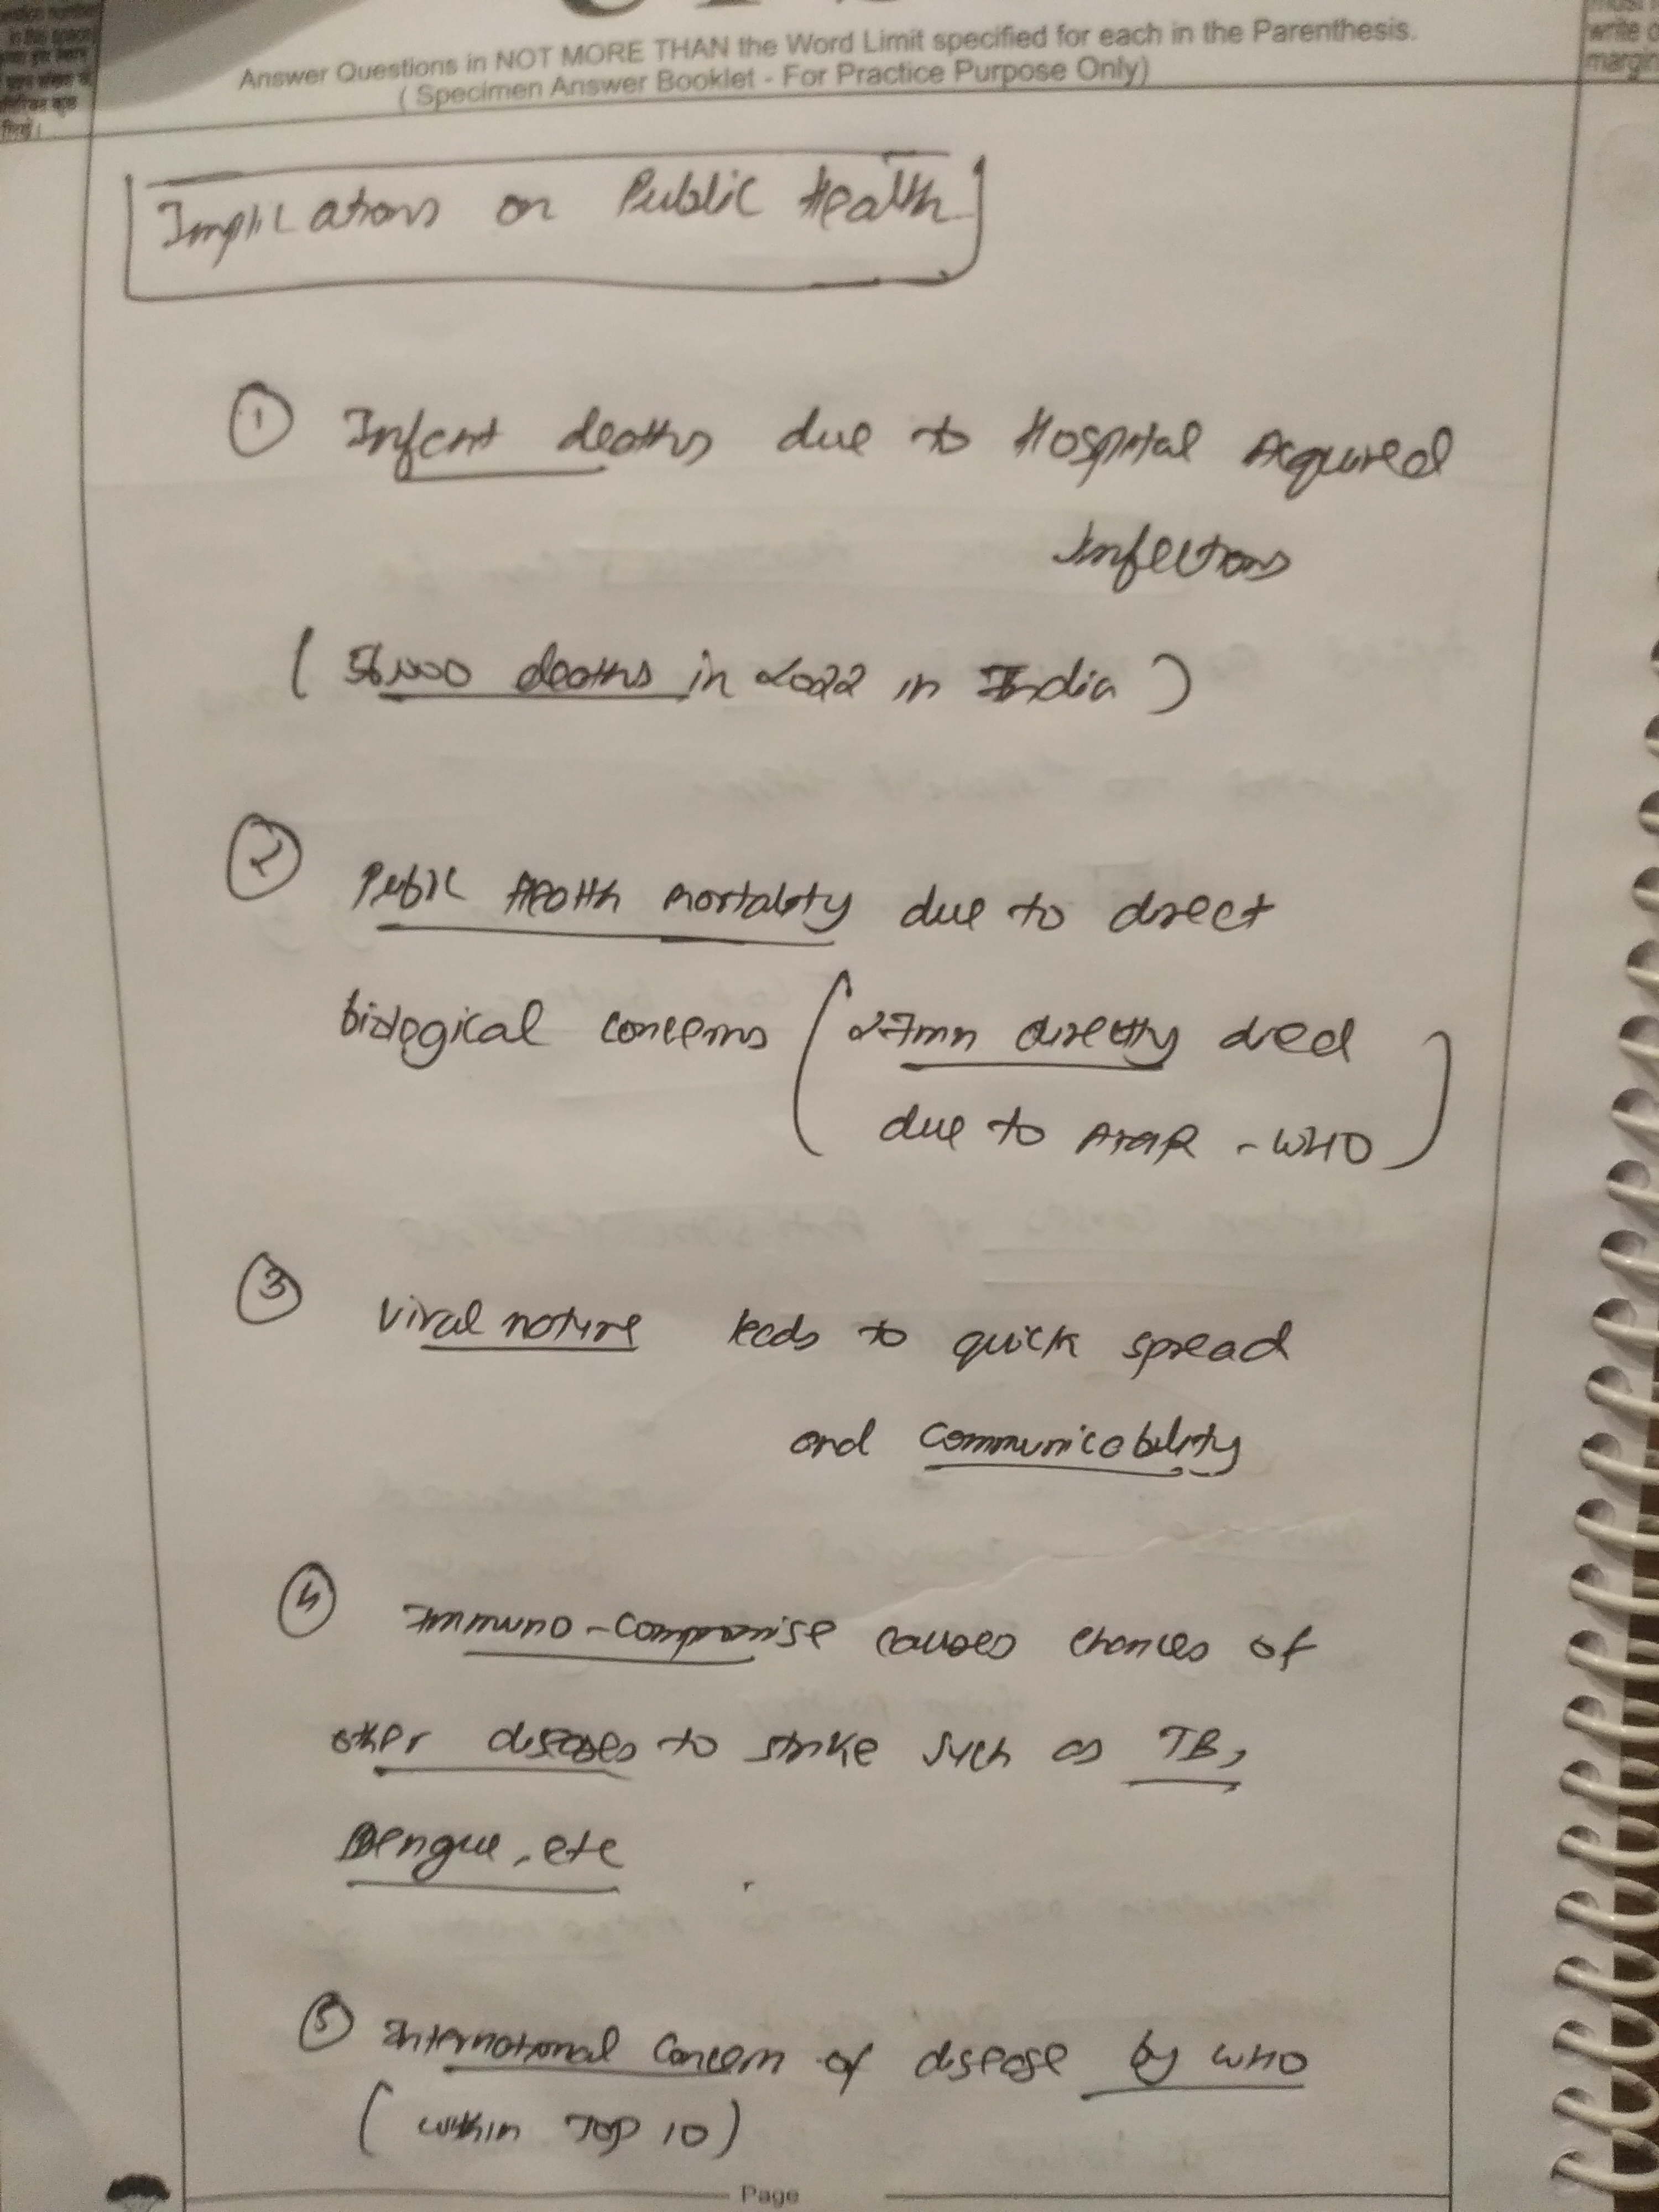 Answer Questions in NOT MORE THAN the Word Limit specified for each in the Parenthesis.
( Specimen Answer Booklet - For Practice Purpose Only)
write
margin
Implications on Public Health
① Infant deaths due to Hospital Acquired
Infections
( 56,000 deaths in 2022 in India )
② Public Health mortality due to direct
biological concerns ( 27mn directly died
due to AMR - WHO )
③ Viral nature leads to quick spread
and communicability
④ Immuno-compromise causes chances of
other diseases to strike such as TB,
Dengue, etc
⑤ International Concern of disease by WHO
( within Top 10 )
Page